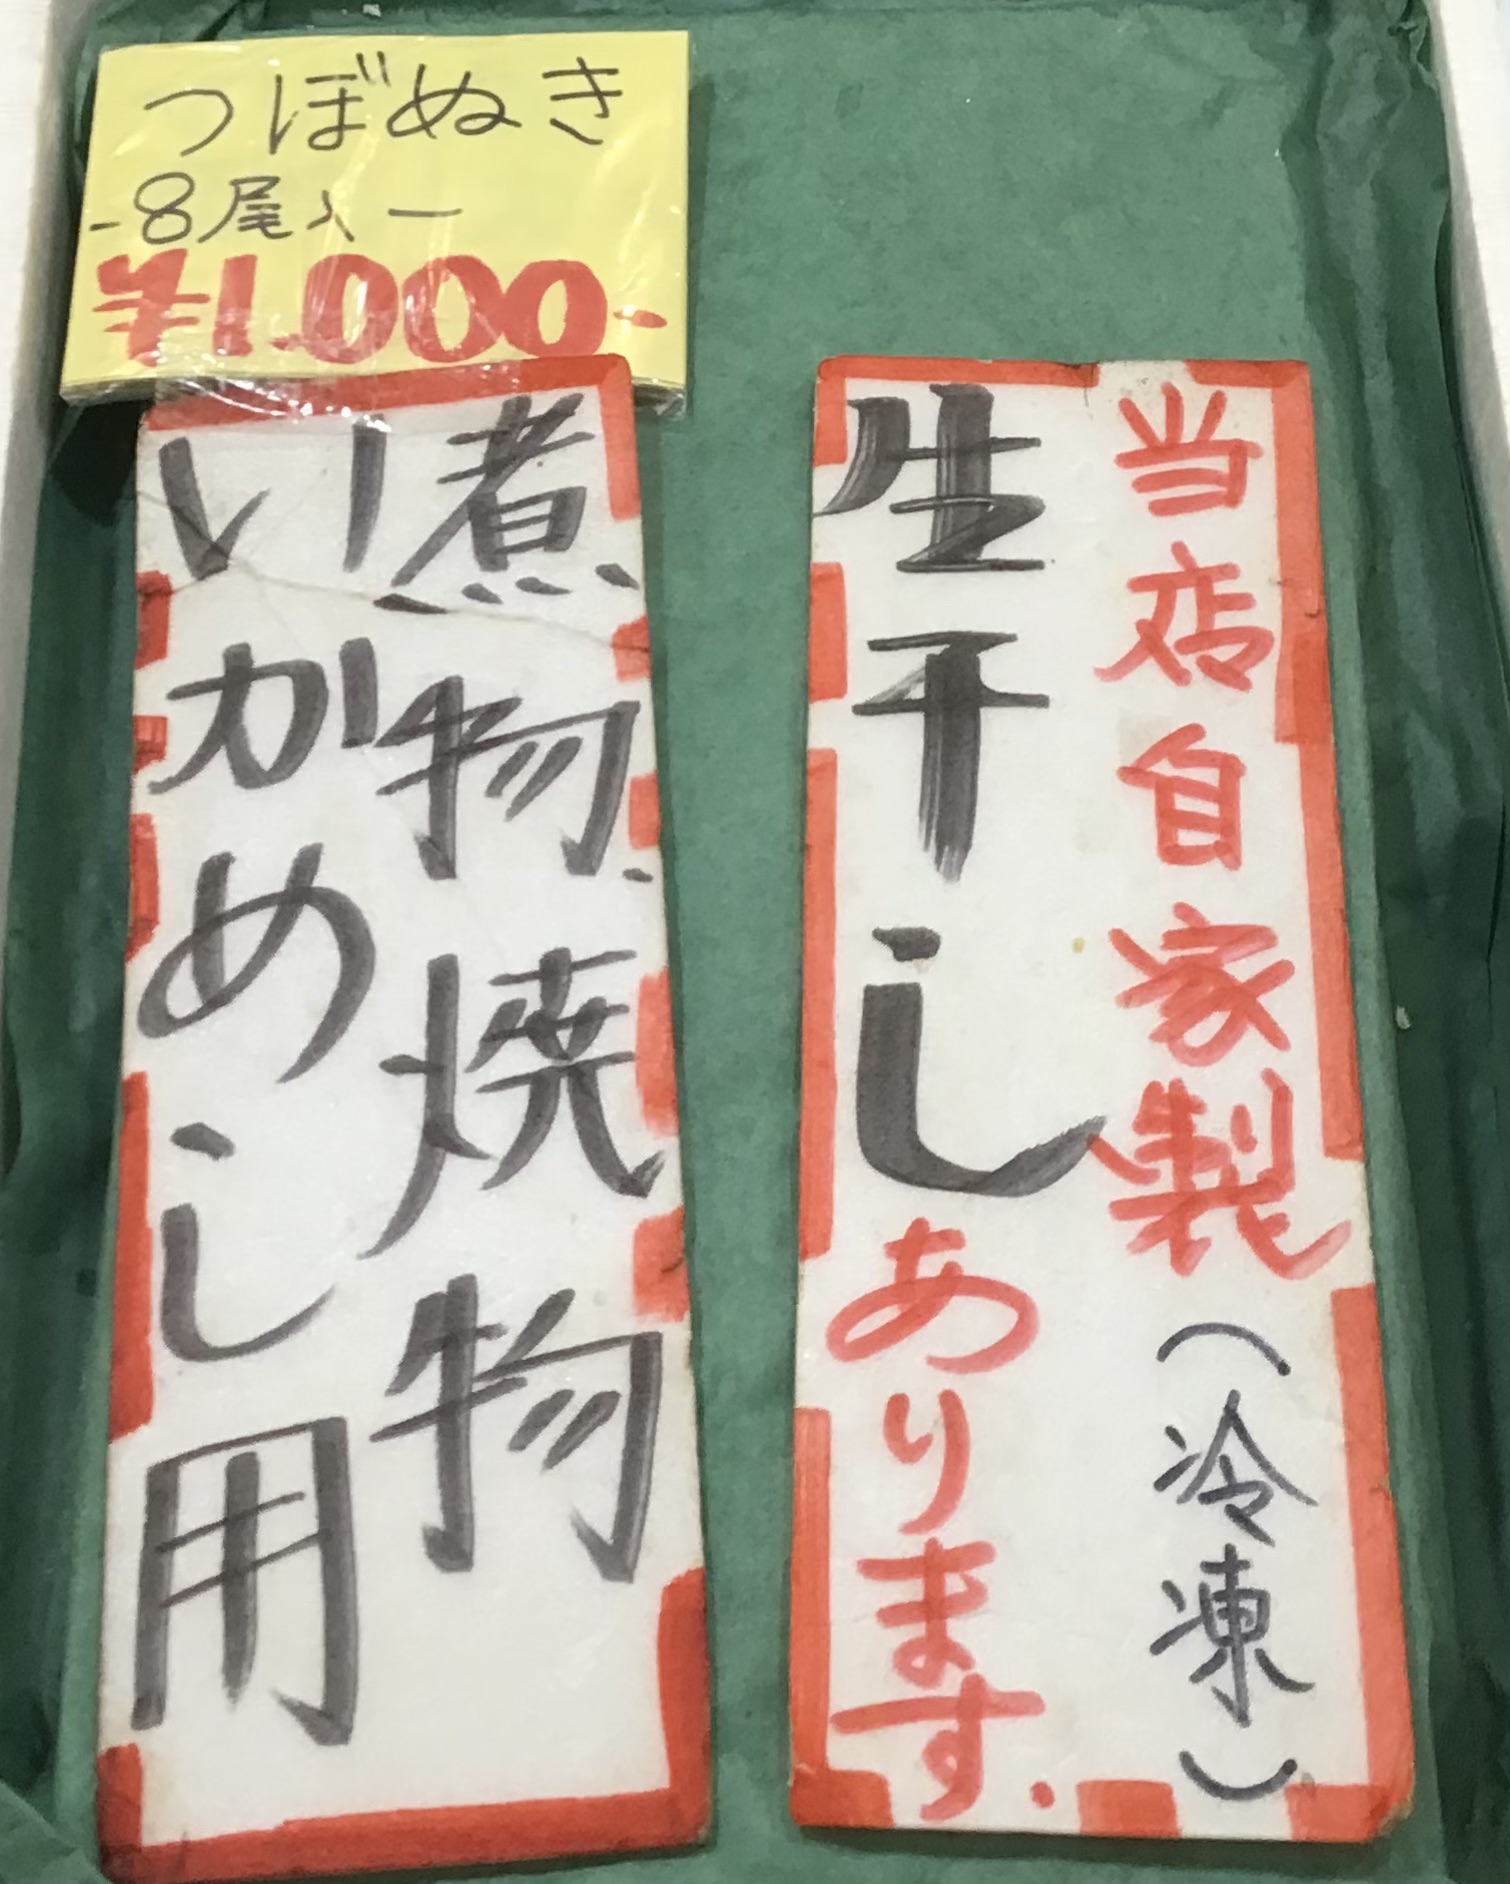 つぼぬき
-8尾入-
¥1.000-
煮物.焼物
いかめし用
当店自家製(冷凍)
生干しあります.